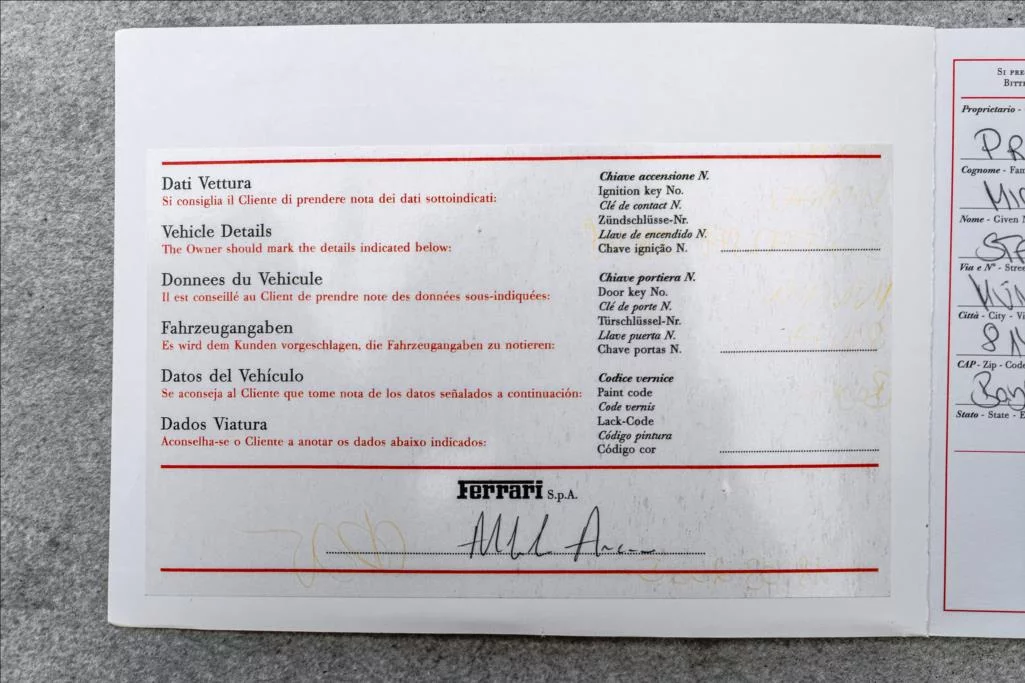 Dati Vettura
Si consiglia il Cliente di prendere nota dei dati sottoindicati:
Vehicle Details
The Owner should mark the details indicated below:
Donnees du Vehicule
Il est conseillé au Client de prendre note des données sous-indiquées:
Fahrzeugangaben
Es wird dem Kunden vorgeschlagen, die Fahrzeugangaben zu notieren:
Datos del Vehículo
Se aconseja al Cliente que tome nota de los datos señalados a continuación:
Dados Viatura
Aconselha-se o Cliente a anotar os dados abaixo indicados:
Chiave accensione N.
Ignition key No.
Clé de contact N.
Zündschlüsse-Nr.
Llave de encendido N.
Chave ignição N.
Chiave portiera N.
Door key No.
Clé de porte N.
Türschlüssel-Nr.
Llave puerta N.
Chave portas N.
Codice vernice
Paint code
Code vernis
Lack-Code
Código pintura
Código cor
Ferrari S.p.A.
Si pre
Bitte
Proprietario -
Cognome - Fam
Nome - Given
Via e N° - Stree
Città - City - Vi
8
CAP - Zip - Code
Stato - State - E